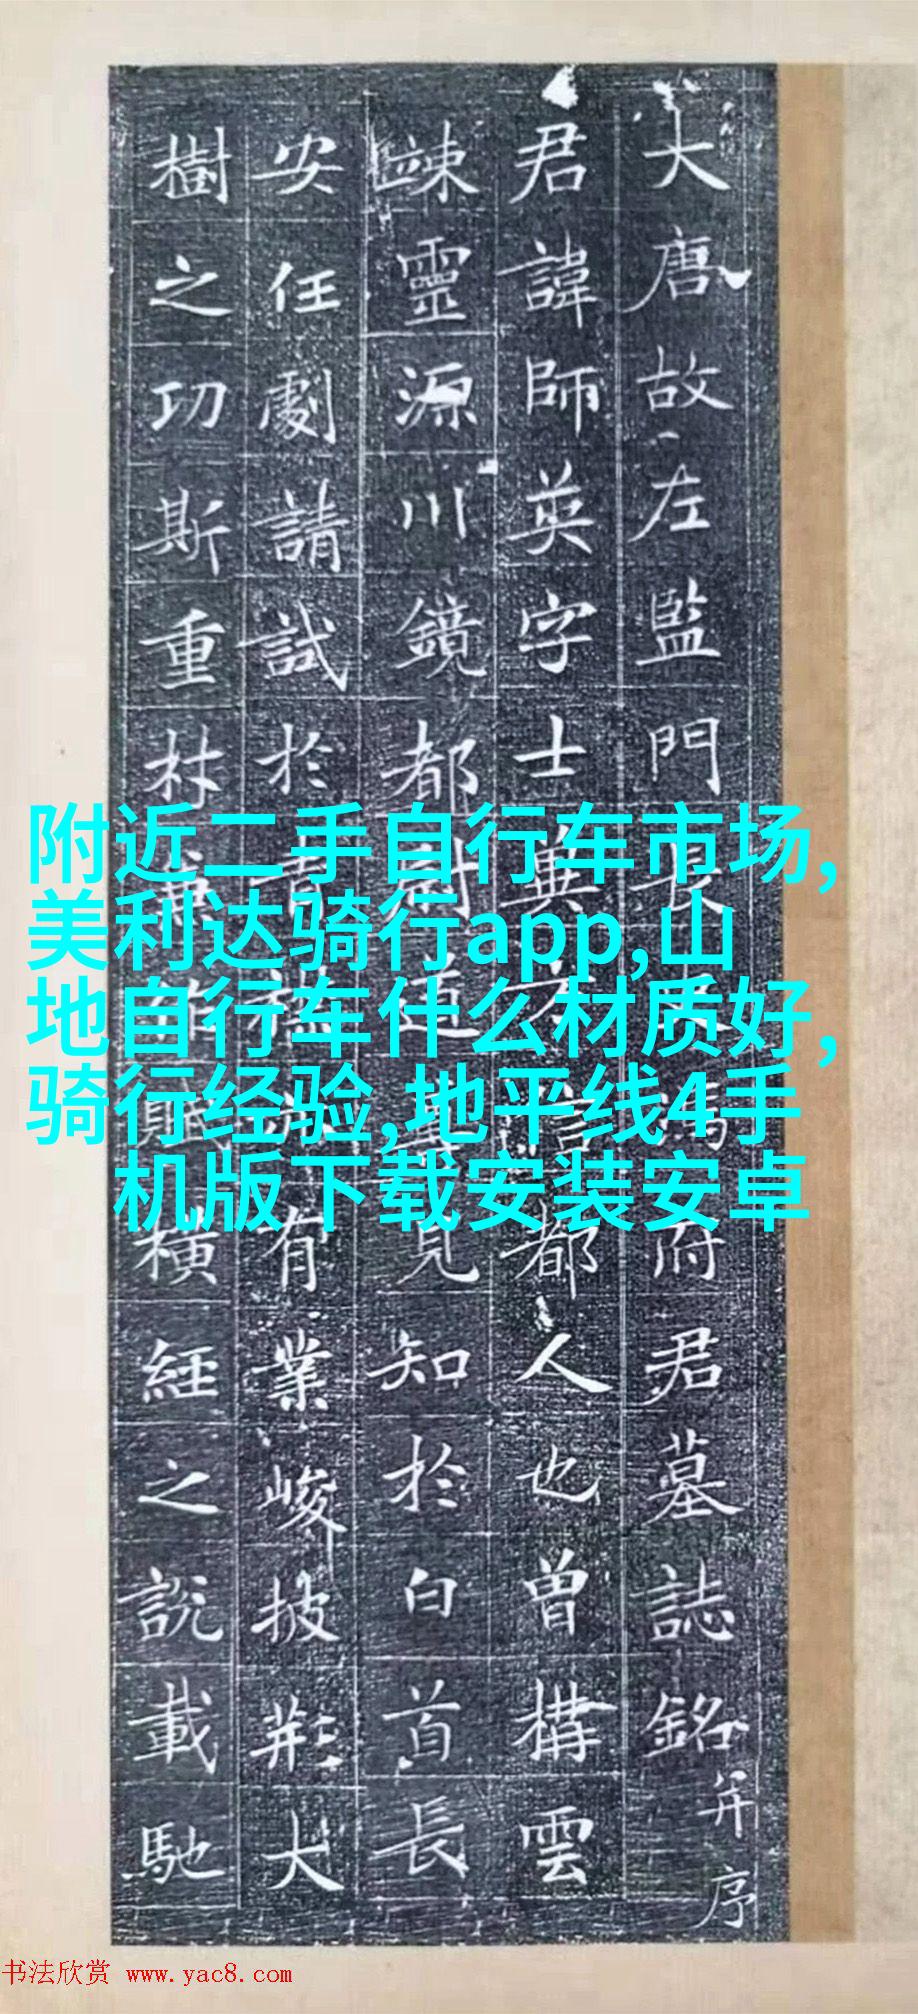 大唐故左監門長史馮府君墓誌銘并序
君諱師英字士與京都人也曾構雲
竦靈源川鏡都尉道見知於白首長
安任劇請試於有業峻披荆大
樹之功斯重林橫經之說載馳
附近二手自行车市场,
美利达骑行app,山
地自行车什么材质好,
骑行经验,地平线4手
机版下载安装安卓
书法欣赏 www.yac8.com